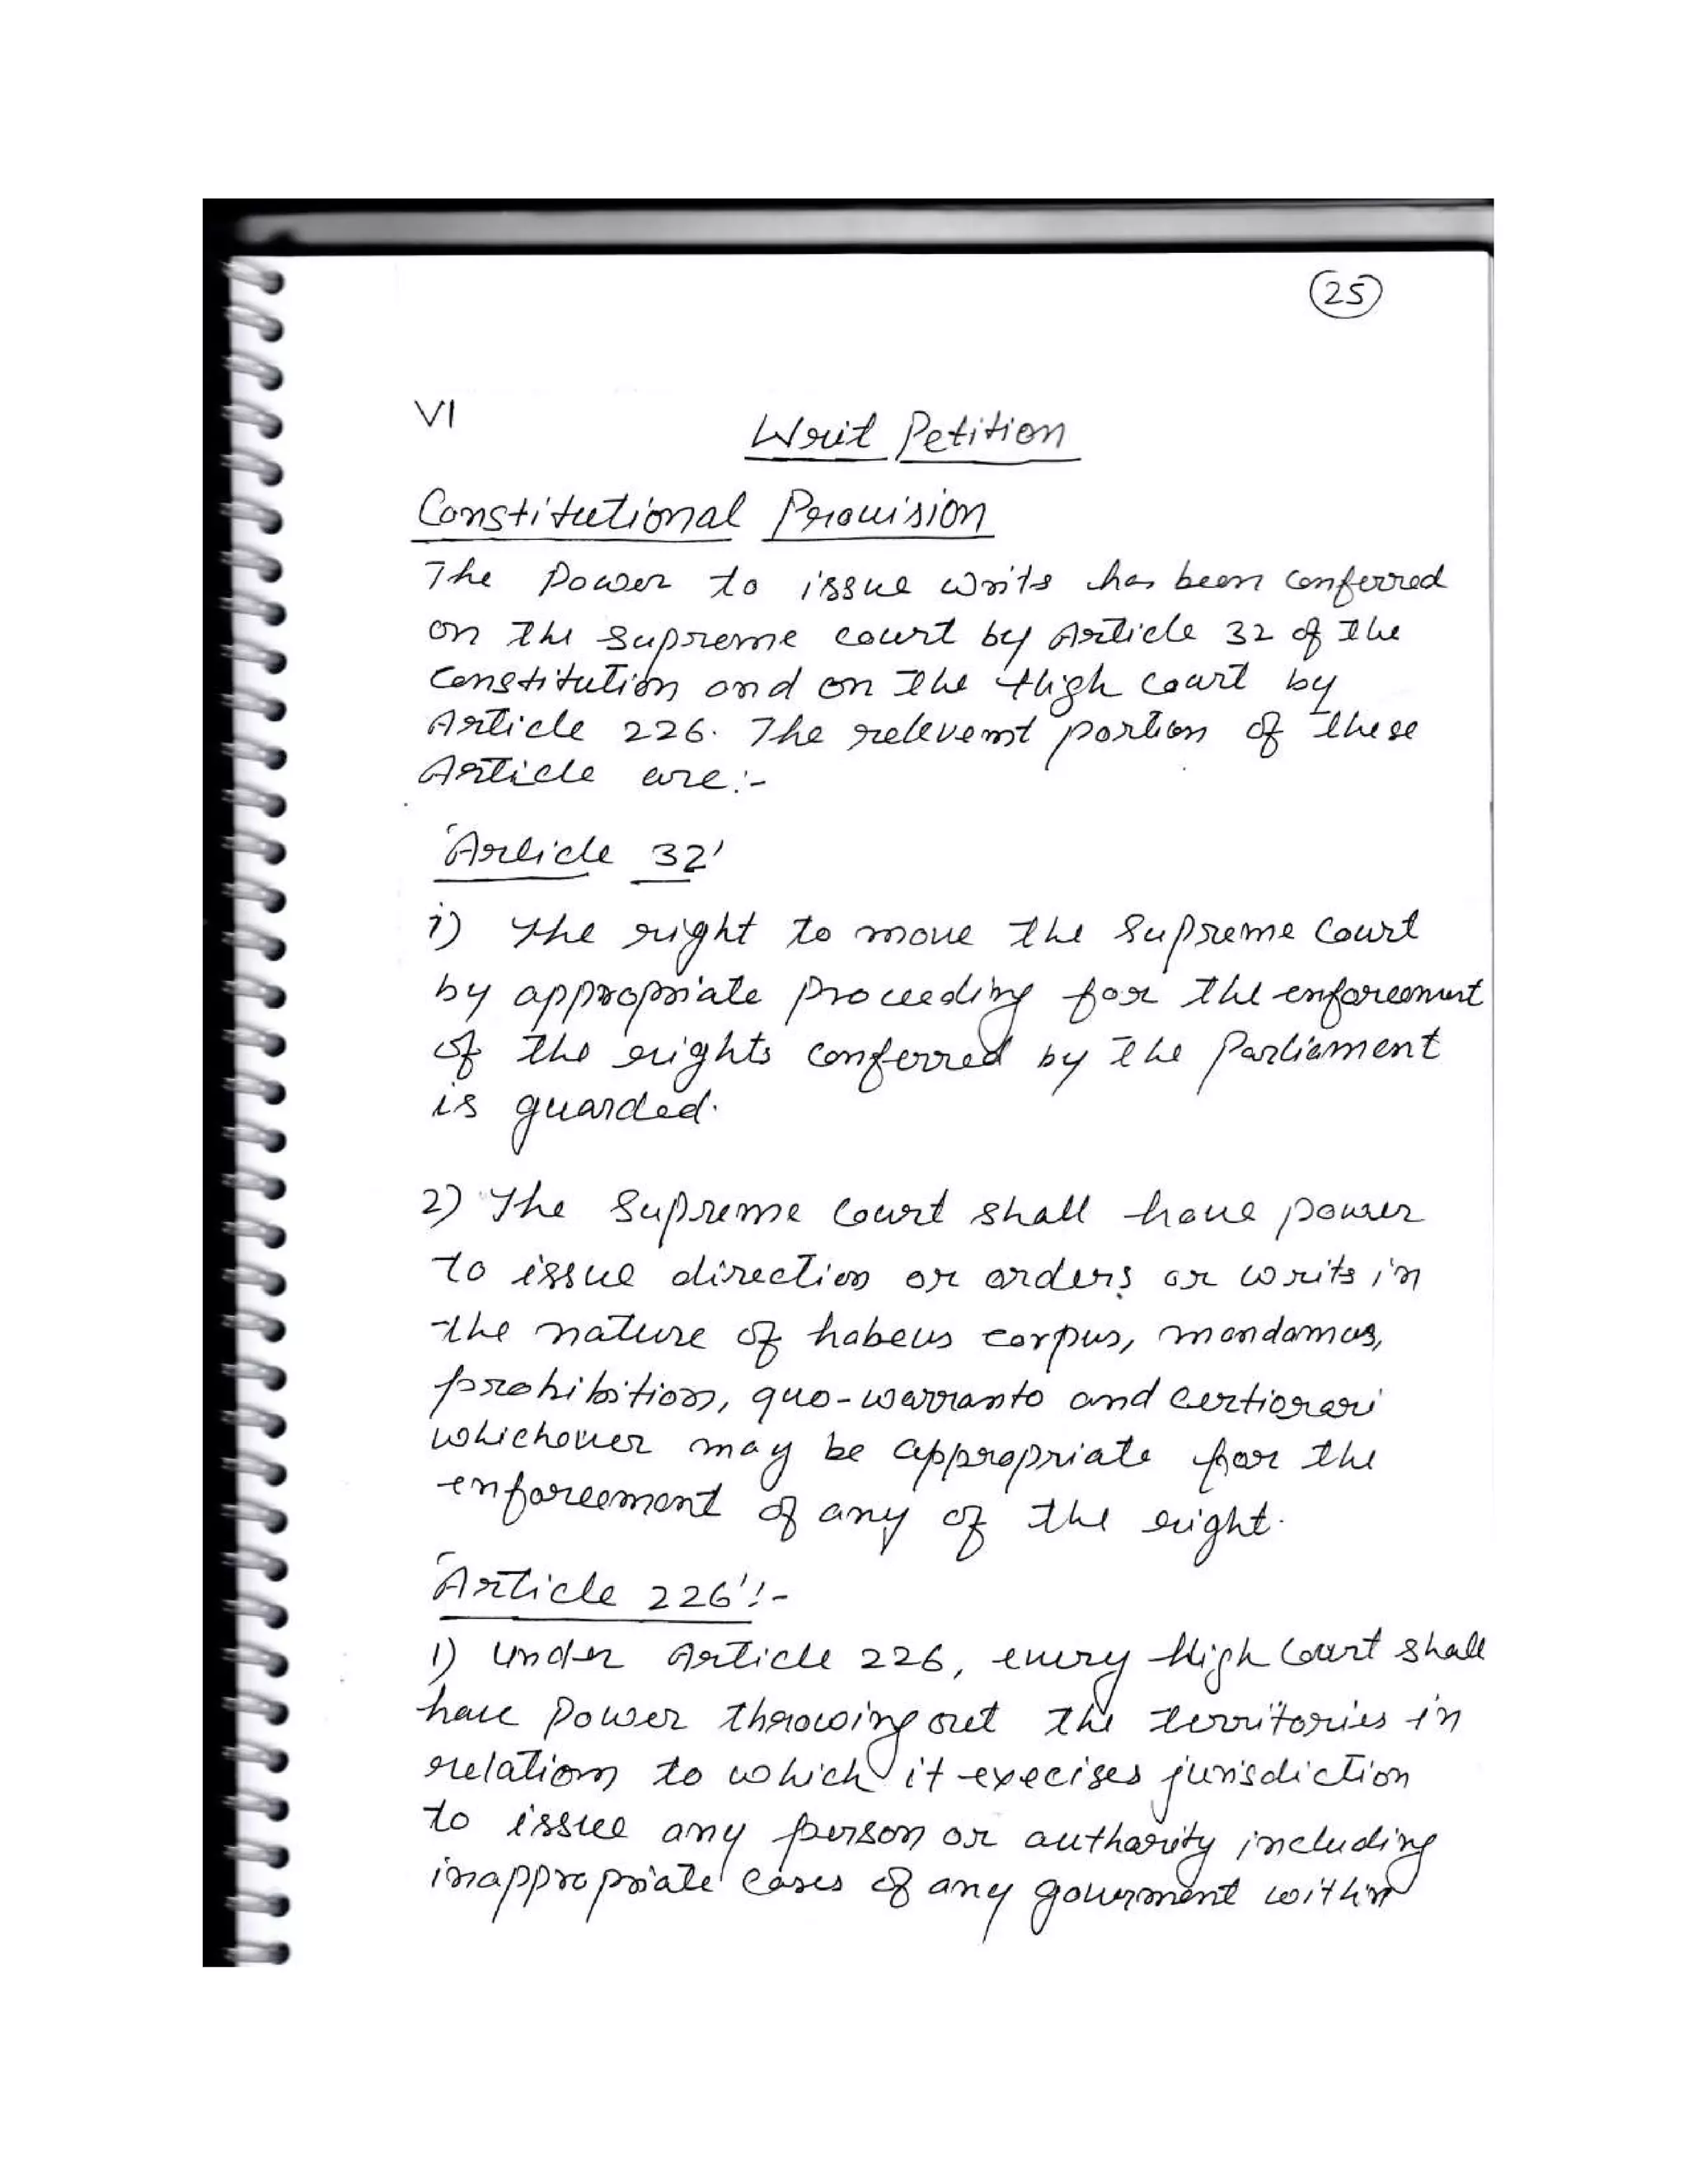 25
VI
Writ Petition
Constitutional Provision
The Power to issue writs has been conferred
on the Supreme court by Article 32 of the
Constitution and on the High Court by
Article 226. The relevent portion of these
Article are:-
'Article 32'
i) The right to move the Supreme Court
by appropriate proceeding for the enforcement
of the rights conferred by the Parliament
is guarded.
2) The Supreme Court shall have power
to issue direction or orders or writs in
the nature of habeus corpus, mandamus,
prohibition, quo-warranto and certiorari
whichever may be appropriate for the
enforcement of any of the right.
'Article 226':-
1) Under Article 226, every High Court shall
have Power throwing out the territories in
relation to which it execises jurisdiction
to issue any person or authority including
inappropriate cases of any government within